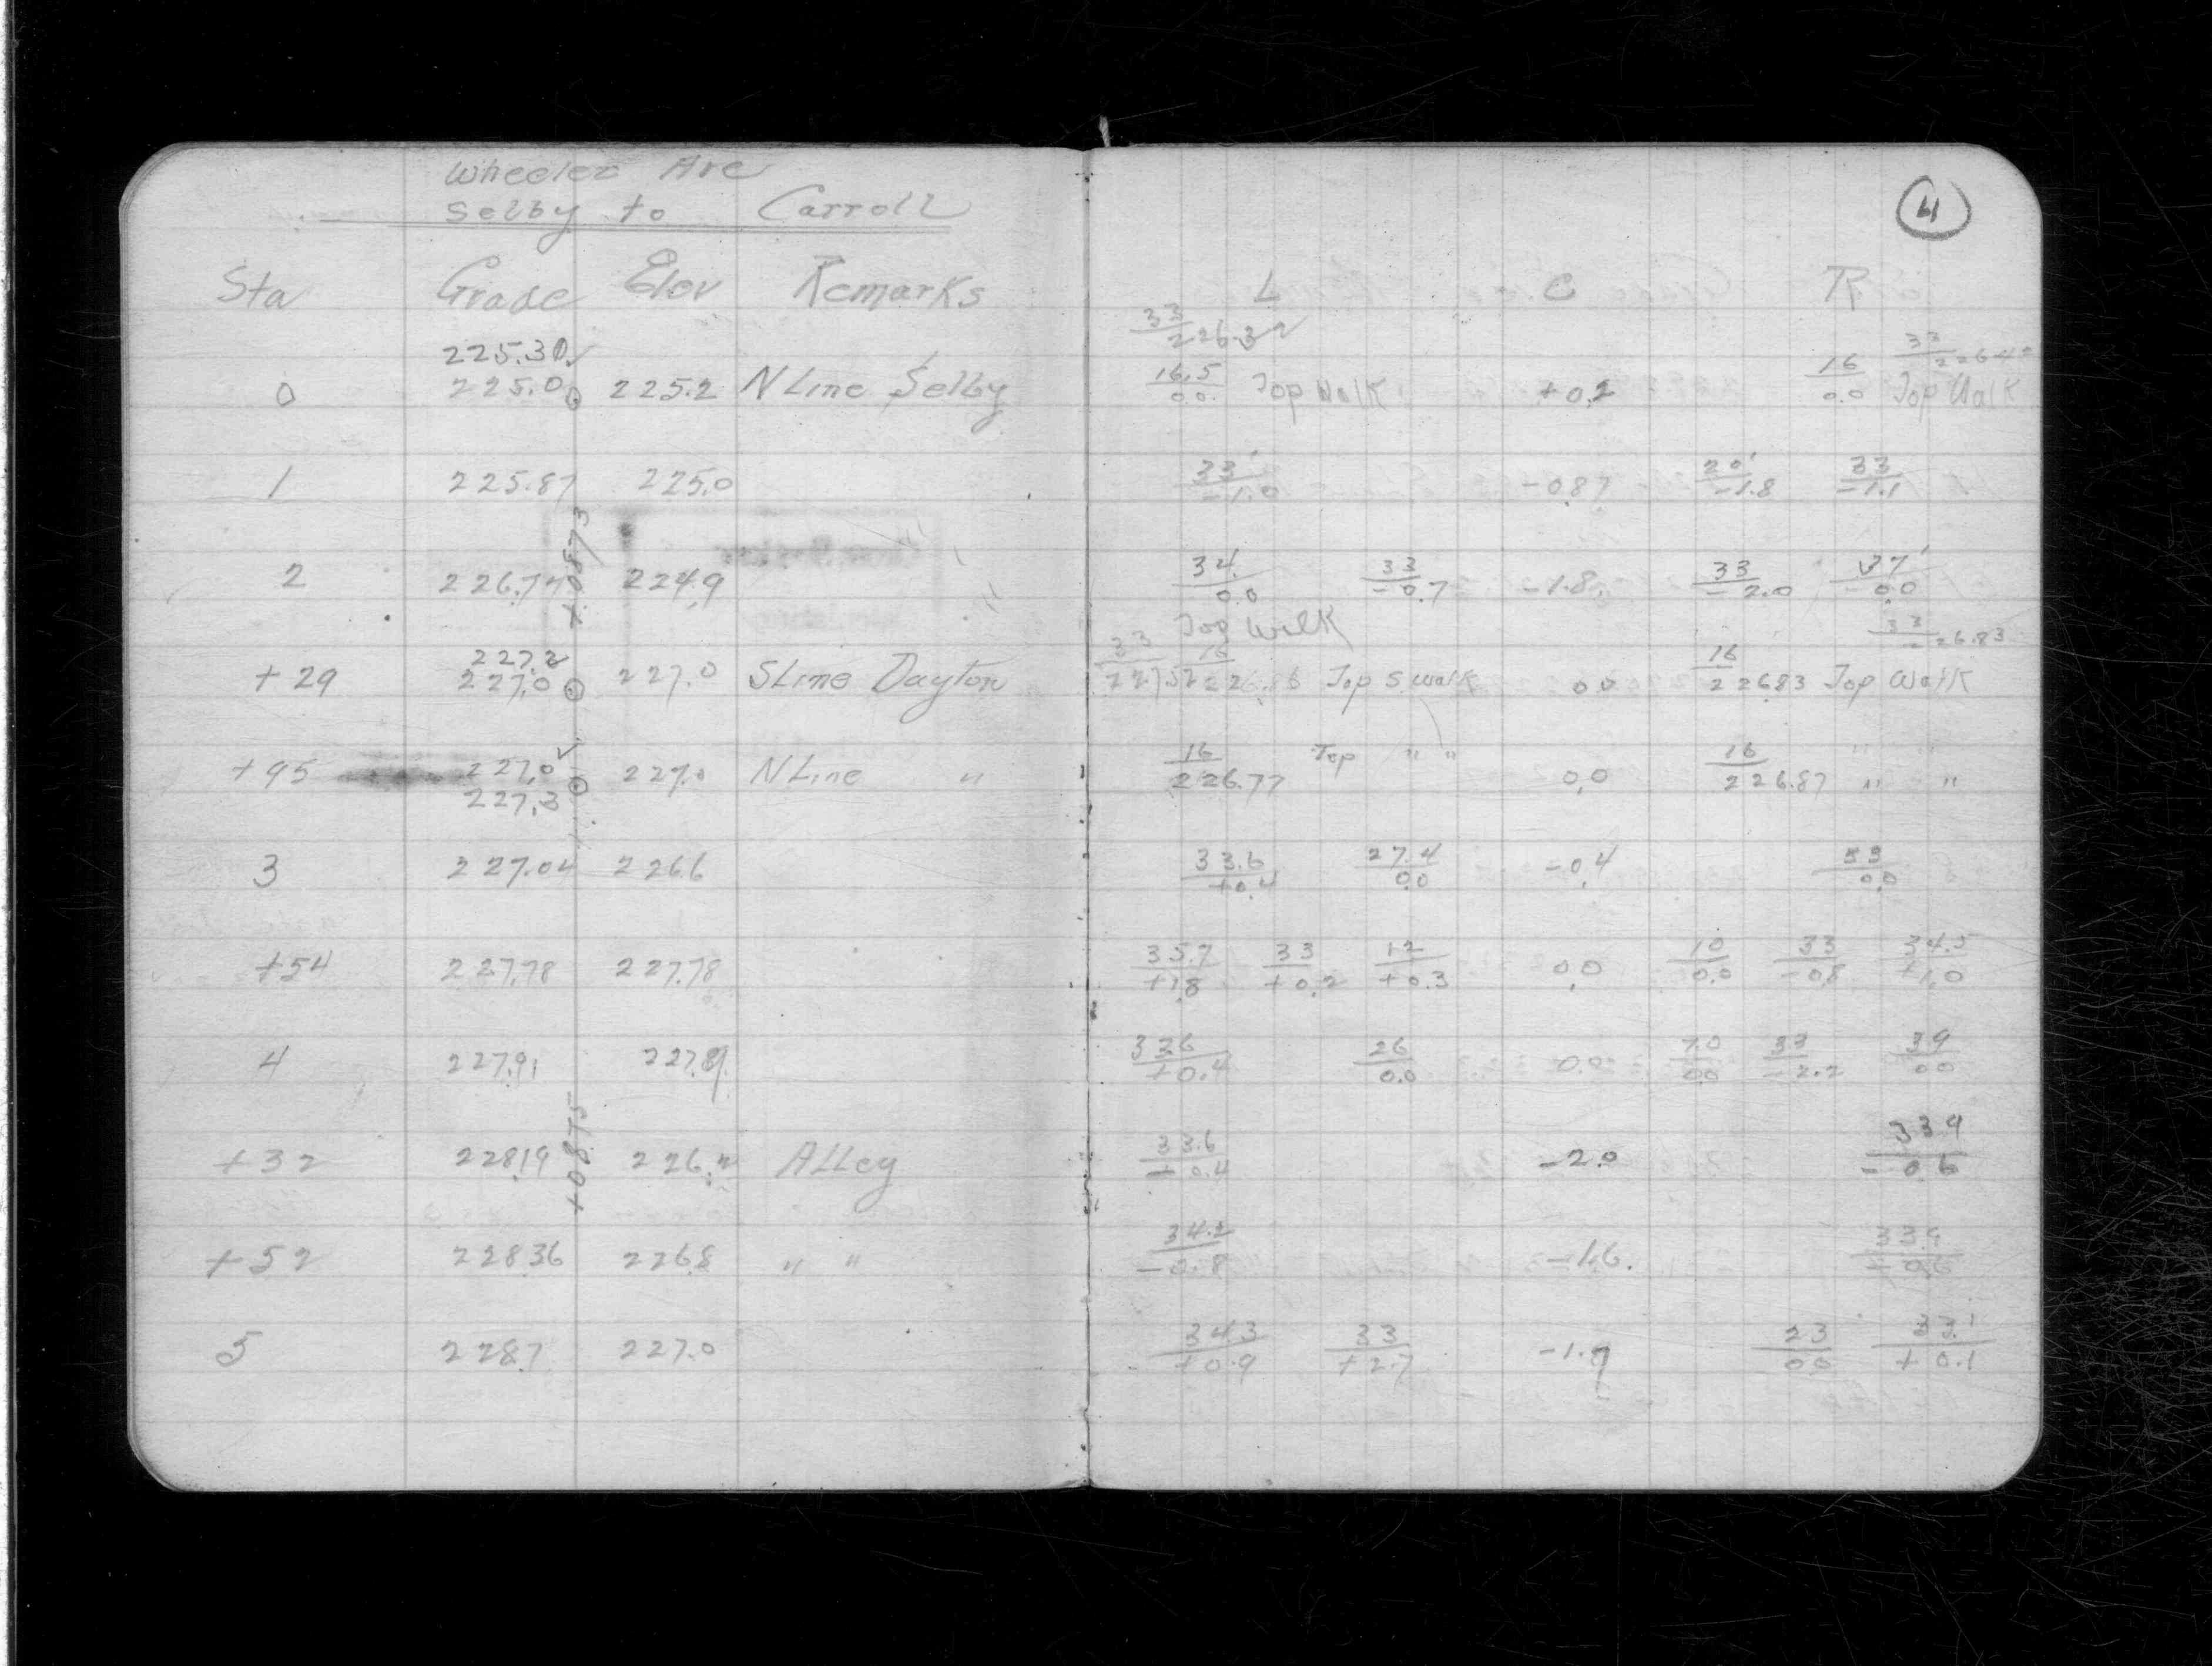 Wheeler Ave
Selby to Carroll
Sta Grade Elev Remarks
225.30
0 225.0 225.2 N Line Selby
1 225.87 225.0
2 226.74 224.9
+.0873
227.2
+29 227.0 227.0 S Line Dayton
+95 227.0 227.0 N Line "
227.3
3 227.04 226.6
+54 227.78 227.78
4 227.91 227.91
+.0875
+32 228.19 226.2 Alley
+52 228.36 226.8 " "
5 228.7 227.0
4
L C R
33/226.32 33/226.42
16.5/0.0 Top Walk +0.2 16/0.0 Top Walk
33'/-1.0 -0.87 20'/-1.8 33/-1.1
34/0.0 33/-0.7 -1.8 33/-2.0 37'/0.0
Top Walk 33/226.83
33/227.52 16/226.86 Top S Walk 0.0 16/226.83 Top Walk
16/226.77 Top " " 0.0 16/226.87 " "
33.6/+0.4 27.4/0.0 -0.4 33/0.0
35.7/+1.8 33/+0.2 12/+0.3 0.0 10/0.0 33/-0.8 34.5/+1.0
33.6/+0.4 26/0.0 0.0 7.0/0.0 33/-2.2 39/0.0
33.6/+0.4 -2.0 33.9/-0.6
34.2/-0.8 -1.6 33.9/+0.6
34.3/+0.9 33/+2.7 -1.7 23/0.0 33.1/+0.1